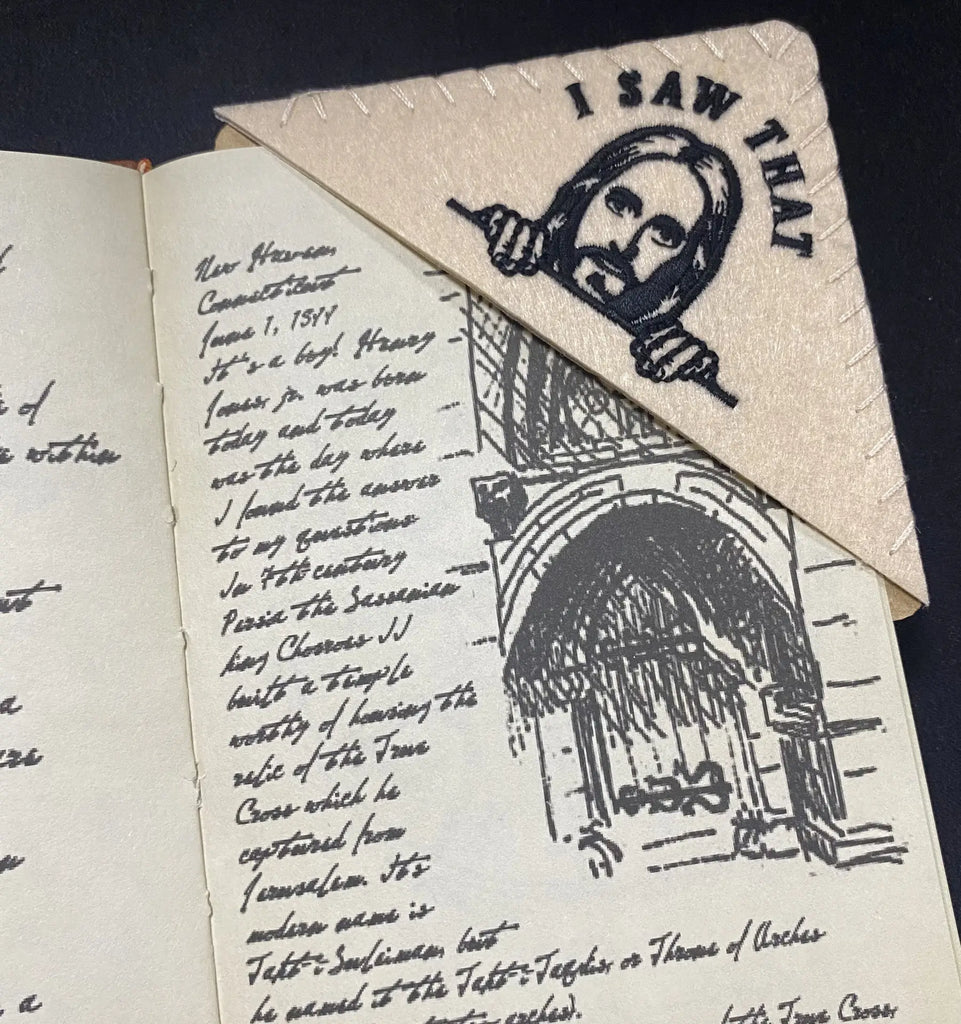 I SAW THAT
of
within
a
New Haven,
Connecticut
June 1, 1899
It's a boy! Henry
Jones, jr. was born
today and today
was the day where
I found the answer
to my questions
In 7th century
Persia the Sassanian
king Chosroes II
built a temple
worthy of housing the
relic of the True
Cross which he
captured from
Jerusalem. Its
modern name is
Takt-i-Suleiman, but
he named it the Takt-i-Taqdis, or Throne of Arches
arches).
the True Cross,
a